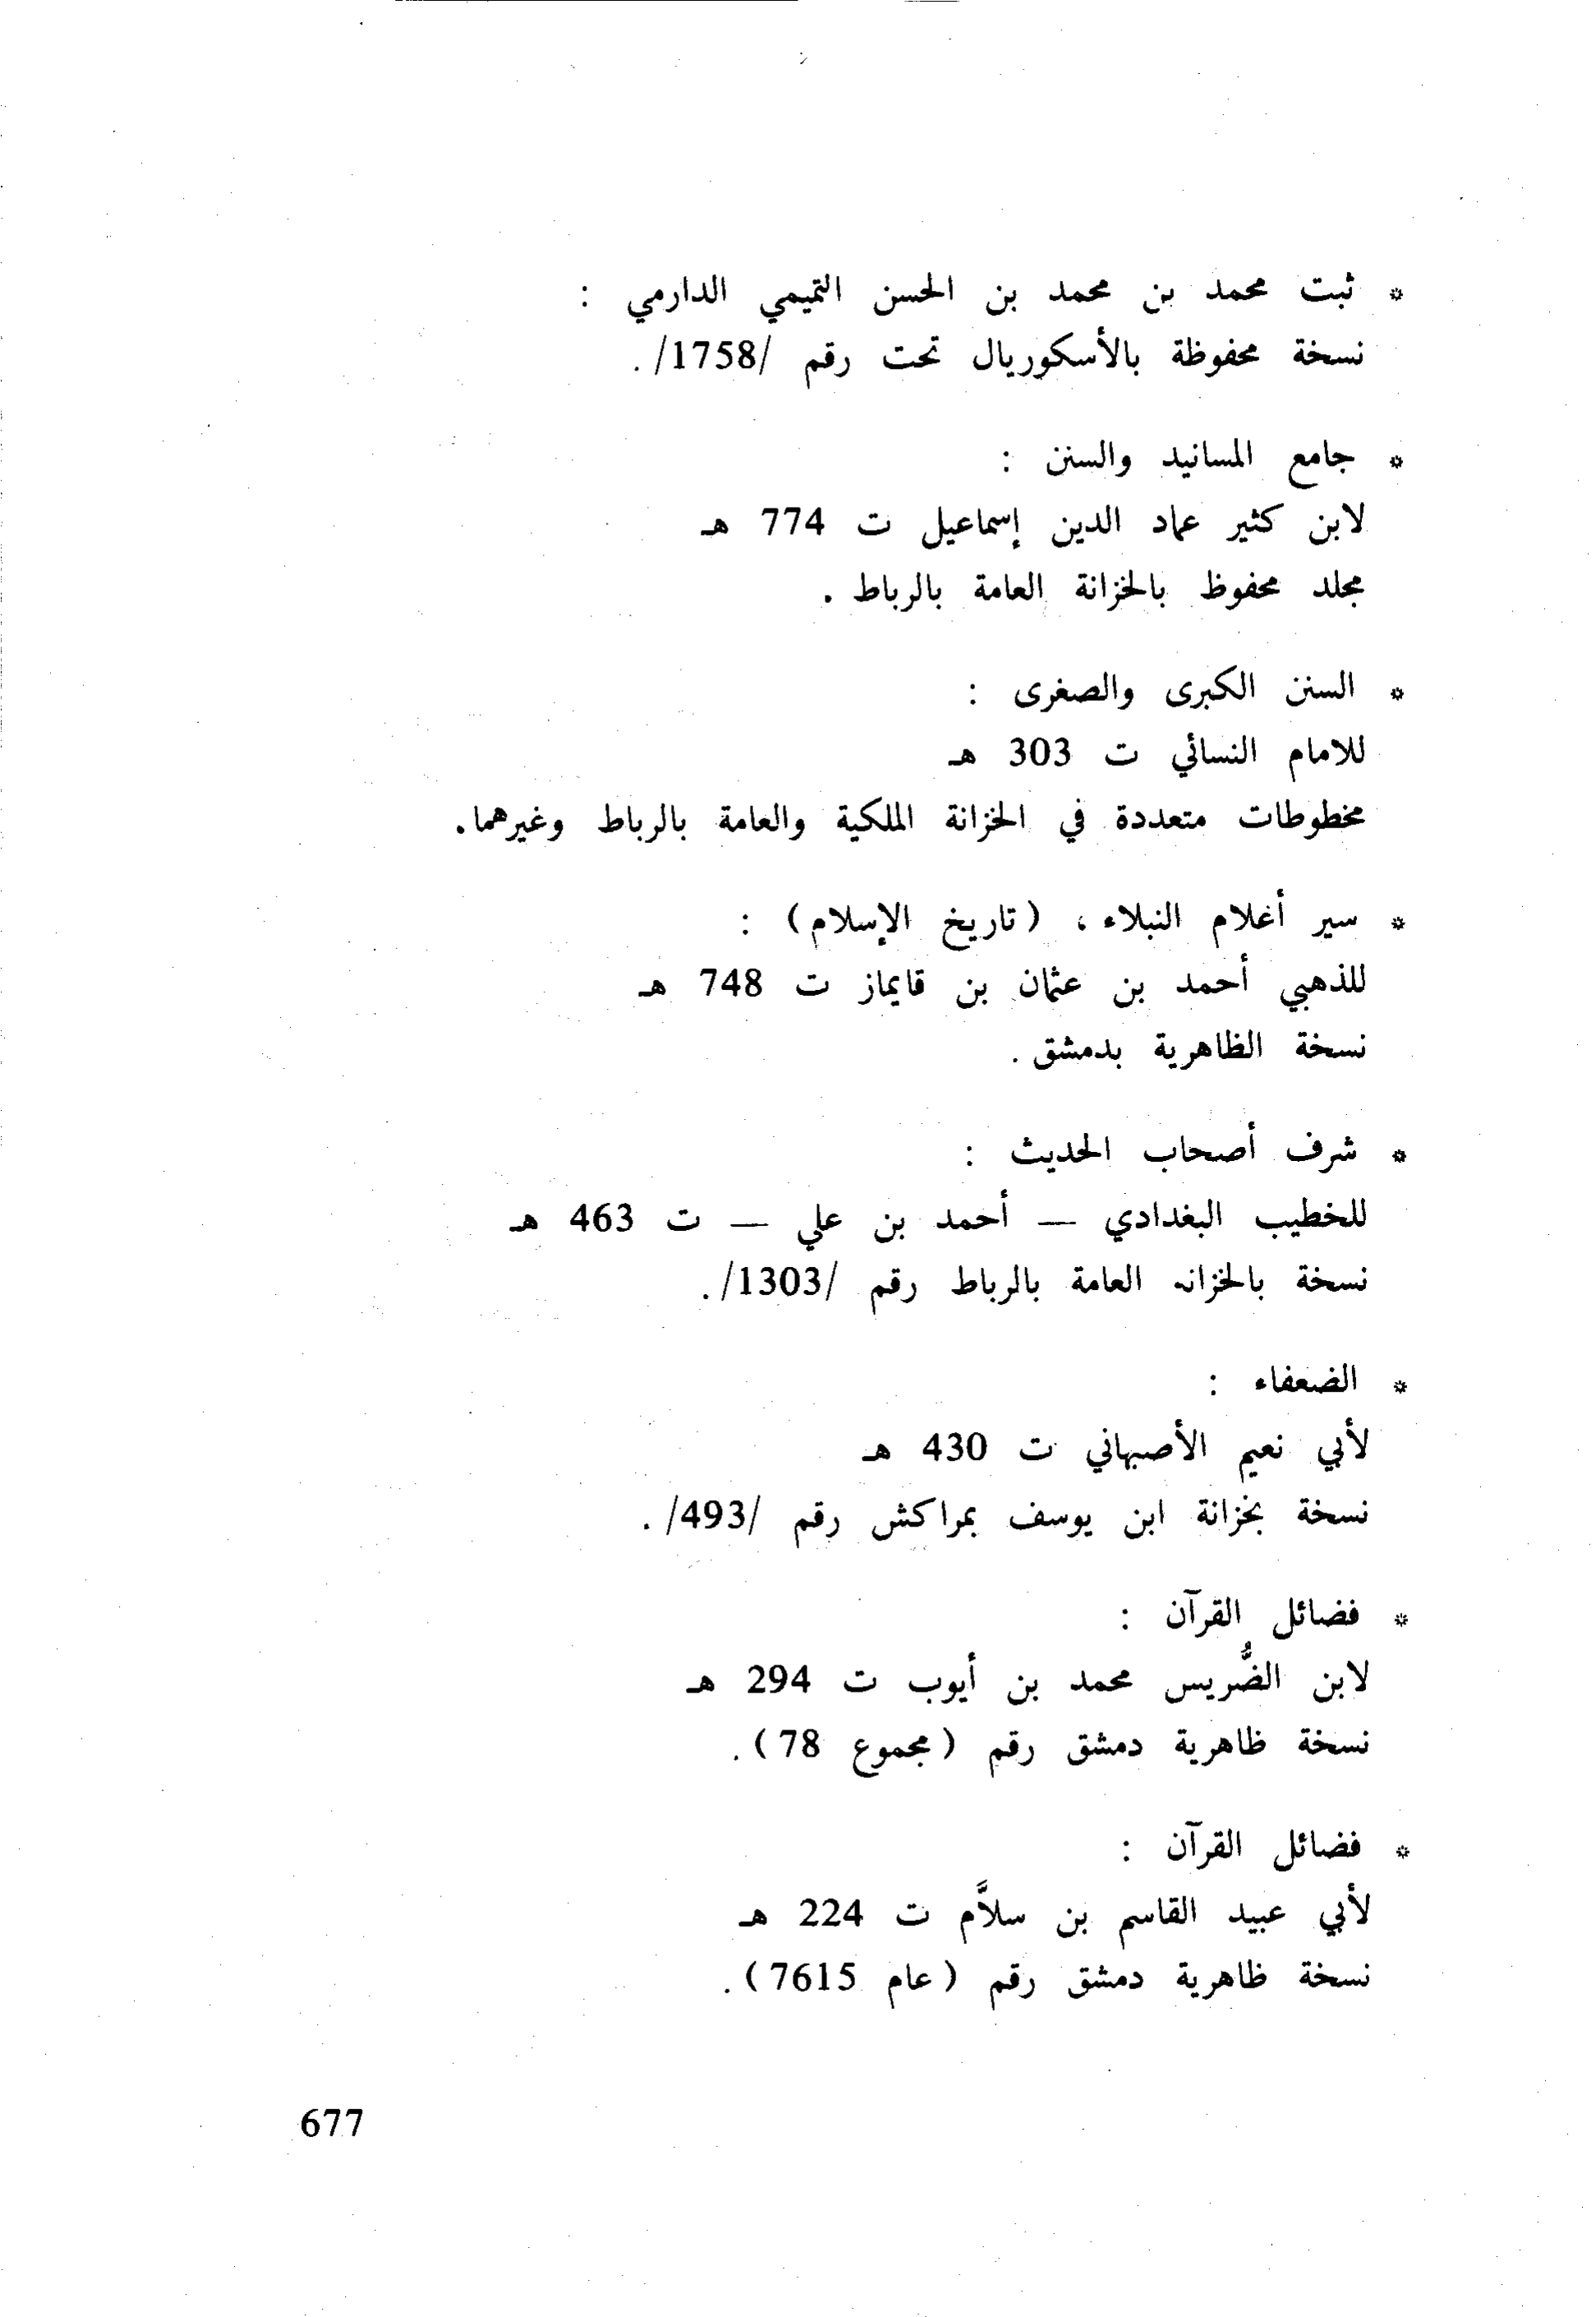 * ثبت محمد بن محمد بن الحسن التميمي الدارمي :
نسخة محفوظة بالأسكوريال تحت رقم /1758/.
* جامع المسانيد والسنن :
لابن كثير عماد الدين إسماعيل ت 774 هـ
مجلد محفوظ بالخزانة العامة بالرباط .
* السنن الكبرى والصغرى :
للامام النسائي ت 303 هـ
مخطوطات متعددة في الخزانة الملكية والعامة بالرباط وغيرهما.
* سير أغلام النبلاء ، (تاريخ الإسلام) :
للذهبي أحمد بن عثمان بن قايماز ت 748 هـ
نسخة الظاهرية بدمشق .
* شرف أصحاب الحديث :
للخطيب البغدادي — أحمد بن علي — ت 463 هـ
نسخة بالخزانه العامة بالرباط رقم /1303/.
* الضعفاء :
لأبي نعيم الأصبهاني ت 430 هـ
نسخة بخزانة ابن يوسف بمراكش رقم /493/.
* فضائل القرآن :
لابن الضُّريس محمد بن أيوب ت 294 هـ
نسخة ظاهرية دمشق رقم (مجموع 78).
* فضائل القرآن :
لأبي عبيد القاسم بن سلاَّم ت 224 هـ
نسخة ظاهرية دمشق رقم (عام 7615).
677